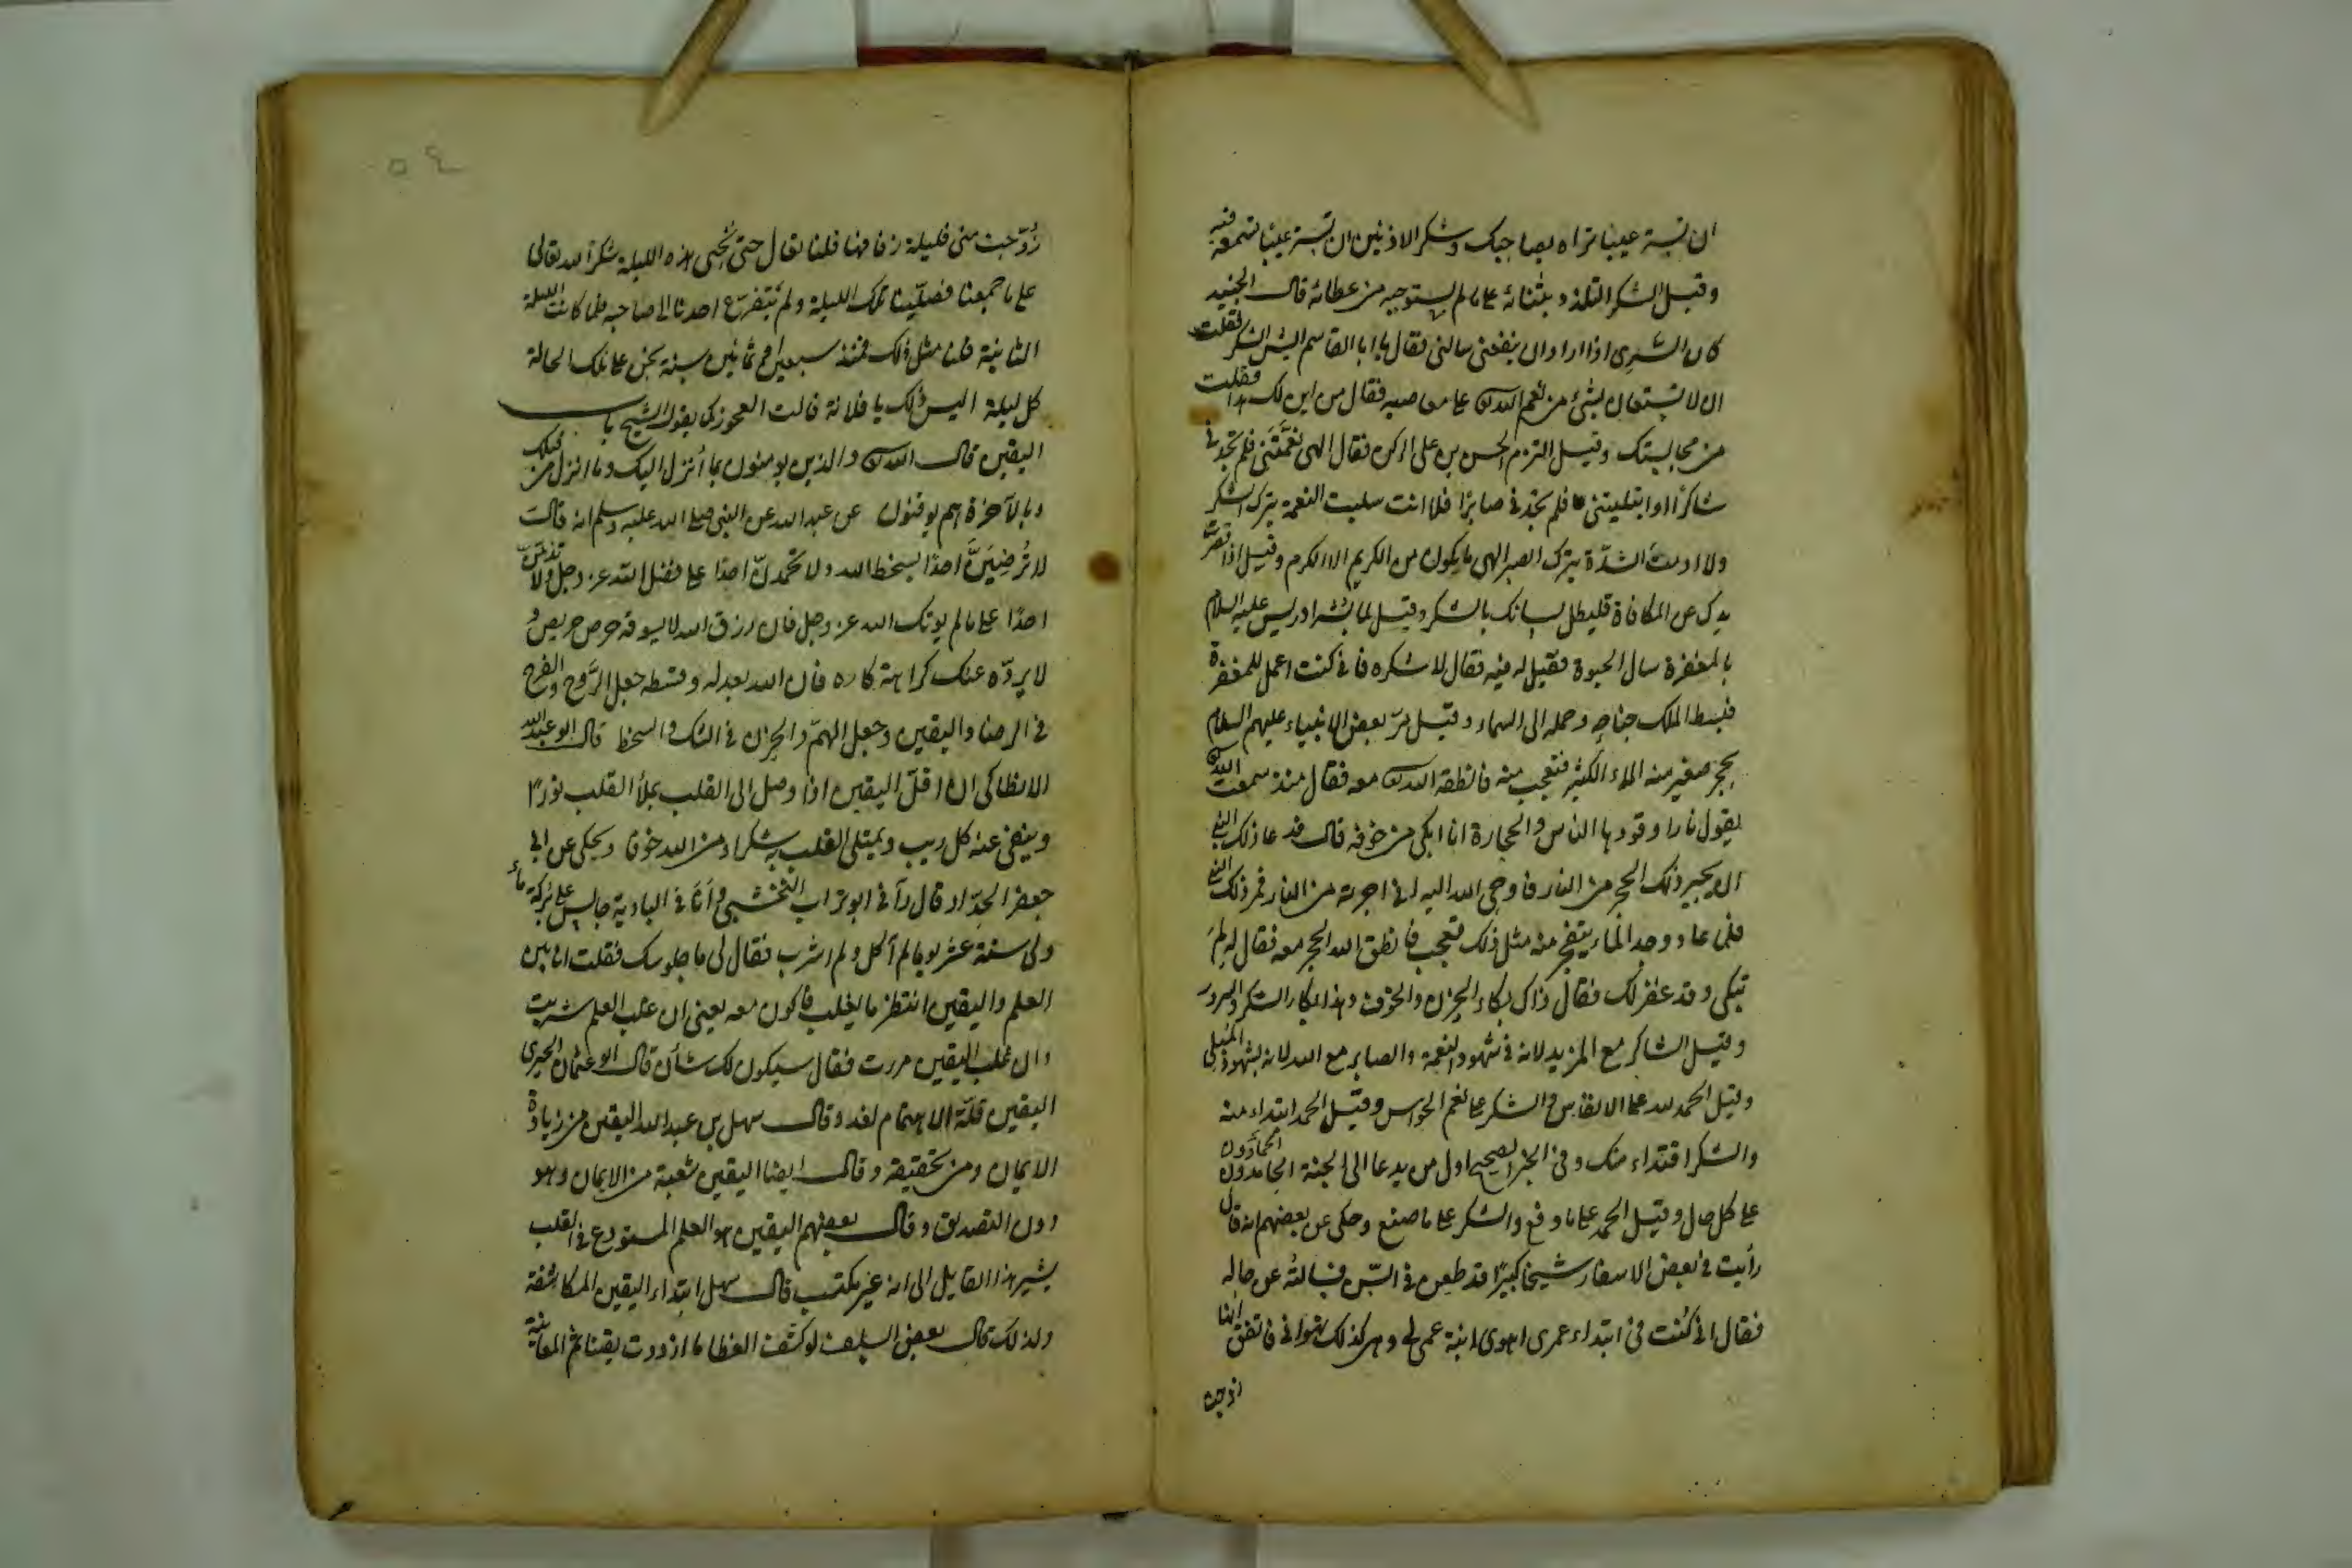 ان تستر عيبا تراه بصاحبك وشكر الاذنين ان تستر عيبا تسمعه فيه
وقيل الشكر التلذذ بثنائه على ما لم يستوجبه من عطائه قال الجنيد
كان السّرى اذا اراد ان ينفعنى سالنى فقال يا ابا القاسم ايش الشكر فقلت
ان لا يستعان بشئ من نعم الله تع على معاصيه فقال من اين لك هذا فقلت
من مجالستك وقيل التزم الحسن بن على الركن فقال الهى نعّمتَنى فلم تجدنى
شاكرًا وابتليتنى فلم تجدنى صابرًا فلا انت سلبت النعمة بترك الشكر
ولا ادمتَ الشدّة بترك الصبر الهى ما يكون من الكريم الا الكرم وقيل اذا قصرت
يدك عن المكافاة فليطل لسانك بالشكر وقيل لما بُشّر ادريس عليه السلام
بالمغفرة سال الحيوة فقيل له فيه فقال لاشكره فانى كنت اعمل للمغفرة
فبسط الملك جناحه وحمله الى السماء وقيل مرّ بعض الانبياء عليهم السلام
بحجر صغير منه الماء الكثير فتعجب منه فانطقه الله تع معه فقال منذ سمعت الله تع
يقول نارا وقودها الناس والحجارة انا ابكى من خوفه قال فدعا ذلك النبى
ان يجير ذلك الحجر من النار فاوحى الله اليه انى اجرته من النار فمر ذلك النبى
فلما عاد وجد الماء يتفجر منه مثل ذلك فتعجب فانطق الله الحجر معه فقال له لِمَ
تبكى وقد غفر لك فقال ذاك بكاء الحزن والخوف وهذا بكاء الشكر والسرور
وقيل الشاكر مع المزيد لانه فى شهود النعمة والصابر مع الله لانه بشهود المُبلى
وقيل الحمد لله على الانفاس والشكر على نعم الحواس وقيل الحمد ابتداء منه
والشكر اقتداء منك وفى الخبر الصحيح اول من يدعا الى الجنة الحامدون الحمادون
على كل حال وقيل الحمد على ما دفع والشكر على ما صنع وحكى عن بعضهم انه قال
رأيت فى بعض الاسفار شيخا كبيرًا قد طعن فى السّن فسالتُه عن حاله
فقال انى كُنت فى ابتداء عمرى اهوى ابنة عم لى وهى كذلك تهوانى فاتفق انها
زوجت
٥٤
زُوّجت منى فليلة زفافها قلنا تعال حتى نُحيى هذه الليلة شكرًا لله تعالى
على ما جمعنا فصلّينا تلك الليلة ولم يتفرّغ احدنا الى صاحبه فلما كانت الليلة
الثانية قلنا مثل ذلك فمنذ سبعين او ثمانين سنة نحن على تلك الحالة
كل ليلة اليس ذلك يا فلانة قالت العجوز كما يقول الشيخ باب
اليقين قال الله تع والذين يومنون بما أنزل اليك وما انزل من قبلك
وبالآخرة هم يوقنون عن عبد الله عن النبى صلى الله عليه وسلم انه قال
لا تُرضِيَنَّ احدًا بسخط الله ولا تحمدنّ احدًا على فضل الله عز وجل ولا تذمّنّ
احدًا على ما لم يوتك الله عز وجل فان رزق الله لا يسوقه حرص حريص و
لا يردّه عنك كراهة كاره فان الله بعدله وقسطه جعل الرَّوح والفرح
فى الرضا واليقين وجعل الهمّ والحزن فى الشك والسخط قال ابو عبد الله
الانطاكى ان اقلّ اليقين اذا وصل الى القلب يملأ القلب نورًا
وينفى عنه كل ريب ويمتلى القلب به شكرا ومن الله خوفا ويحكى عن ابى
جعفر الحدّاد قال رآنى ابو تراب النخشبى وانَا فى البادية جالس على بركة ماء
ولى ستة عشر يوما لم آكل ولم اشرب فقال لى ما جلوسك فقلت انا بين
العلم واليقين انتظر ما يغلب فاكون معه يعنى ان غلب العلم شربت
وان غلب اليقين مررت فقال سيكون لك شأن قال ابو عثمان الحيرى
اليقين قلّة الاهتمام لغد وقال سهل بن عبد الله اليقين من زيادة
الايمان ومن تحقيقه وقال ايضا اليقين شعبة من الايمان وهو
دون التصديق وقال بعضهم اليقين هو العلم المستودع فى القلب
يشير هذا القايل الى انه غير مكتسب قال سهل ابتداء اليقين المكاشفة
ولذلك قال بعض السلف لو كشف الغطا ما ازددت يقينا ثم المعاينة